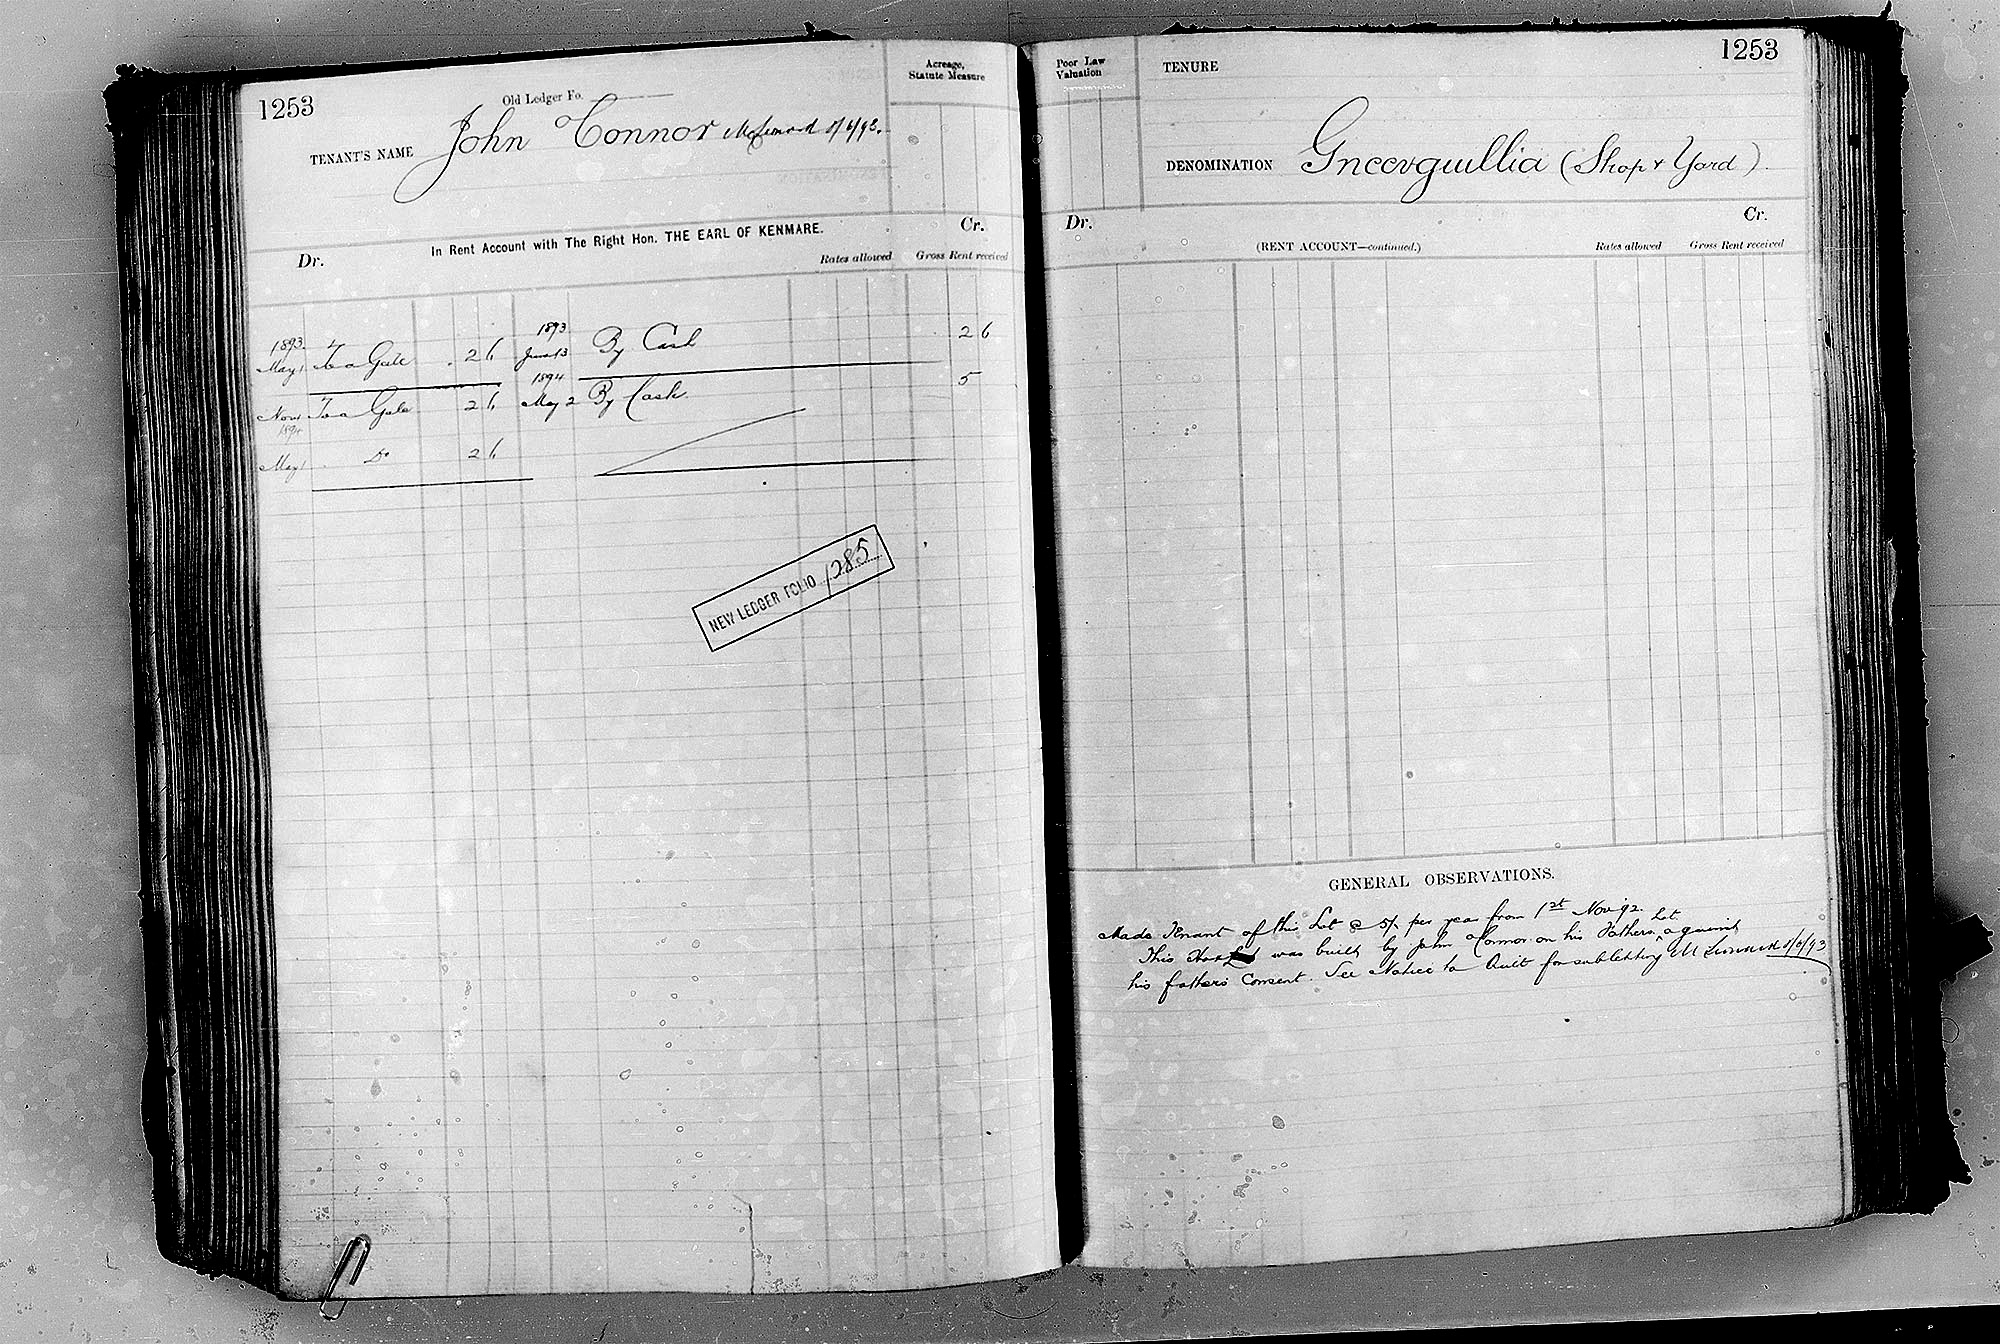 1253
Old Ledger Fo.
Acreage,
Statute Measure
TENANT'S NAME John O'Connor 8/6/93.
In Rent Account with The Right Hon. THE EARL OF KENMARE.
Dr. Cr.
Rates allowed Gross Rent received
1893. 1893
May 1 To a Gale 2 6 June 13 By Cash 2 6
1894
Nov 1 To a Gale 2 6 May 2 By Cash 5
1894
May 1 Do 2 6
NEW LEDGER FOLIO 1285
1253
Poor Law
Valuation
TENURE
DENOMINATION Gneevguillia (Shop & Yard).
Dr. Cr.
(RENT ACCOUNT—continued.)
Rates allowed Gross Rent received
GENERAL OBSERVATIONS.
Made Tenant of this Lot @ 5/- per year from 1st Nov 92.
This was built by John O'Connor on his Fathers Lot against
his fathers consent. See Notice to Quit for subletting 8/6/93